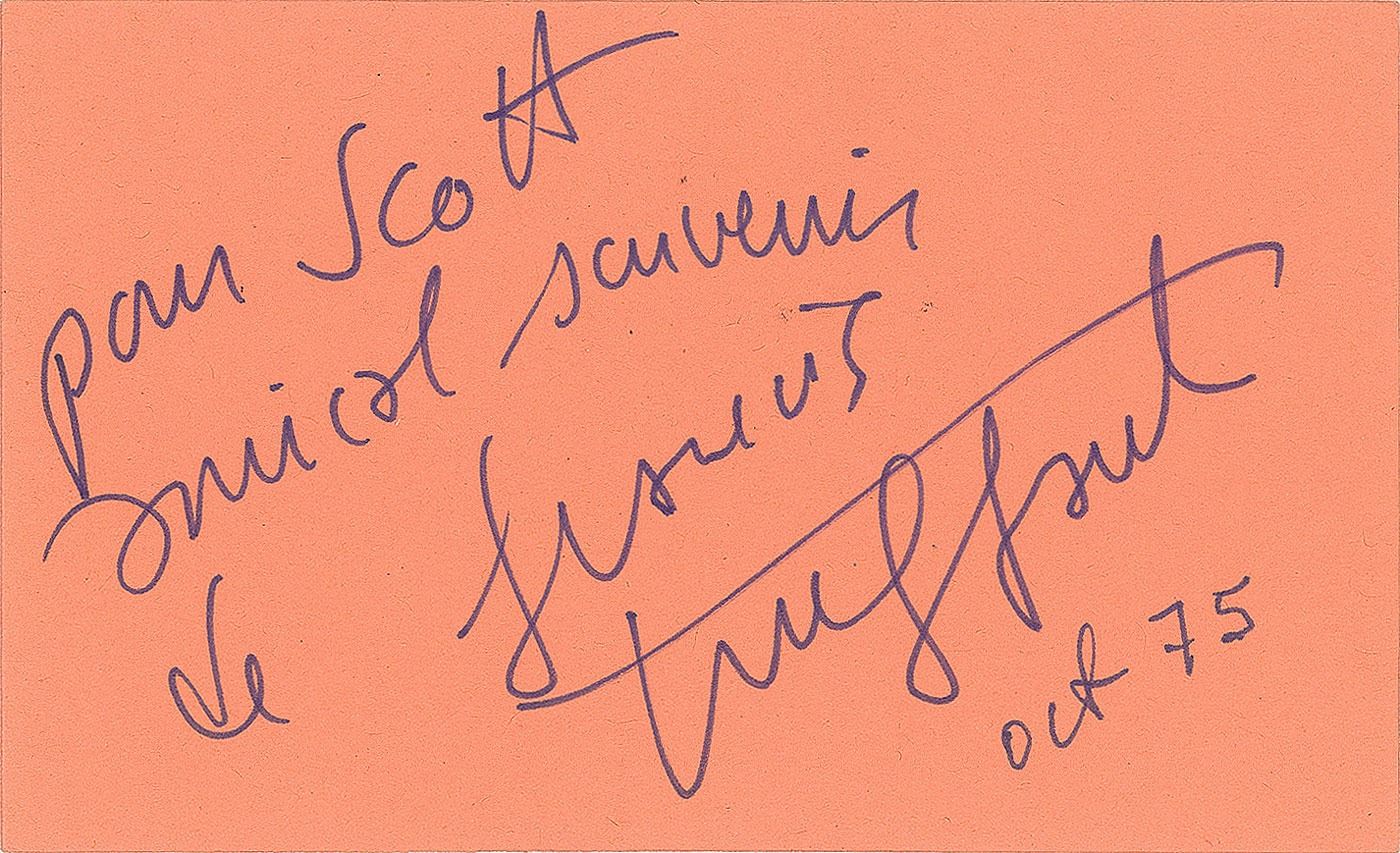 pour Scott
amical souvenir
de françois
truffaut
oct 75